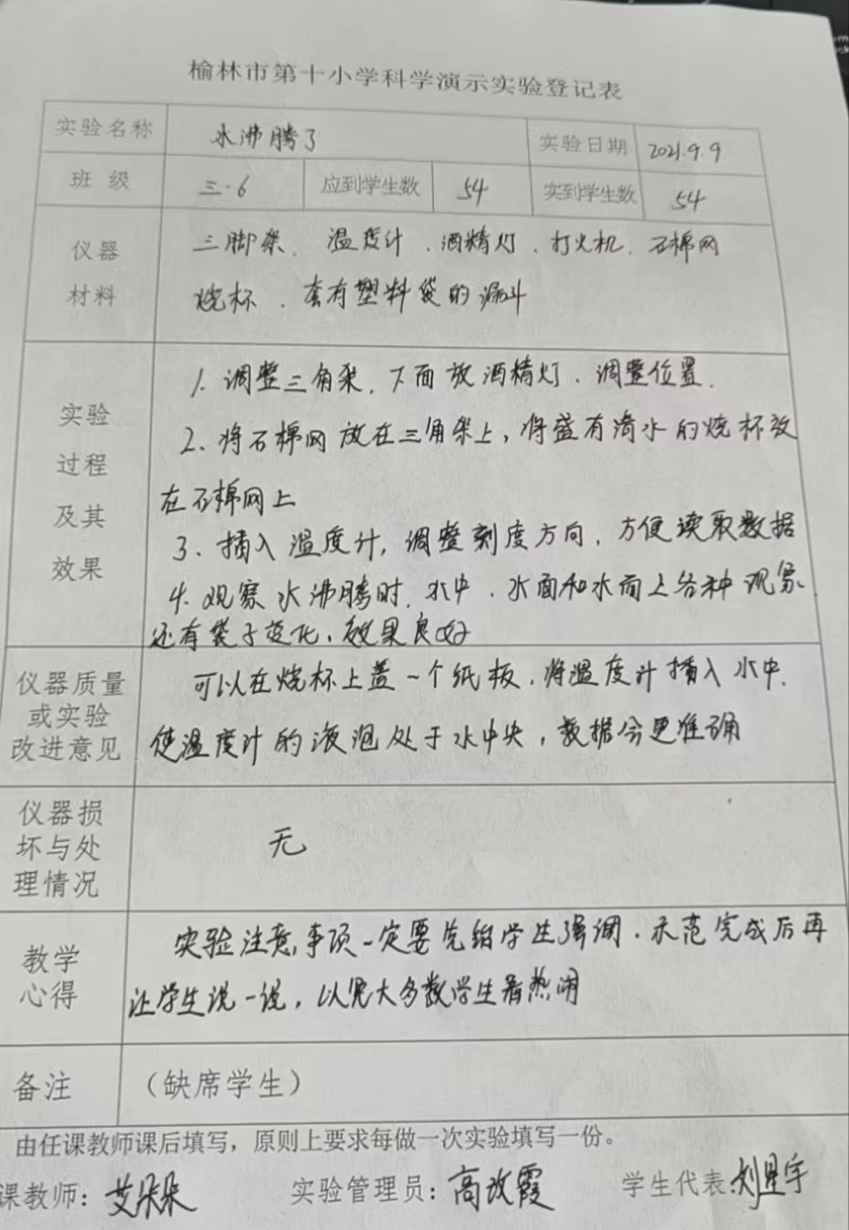 榆林市第十小学科学演示实验登记表
实验名称 水沸腾了 实验日期 2021.9.9
班 级 三·6 应到学生数 54 实到学生数 54
仪器
材料
三脚架、温度计、酒精灯、打火机、石棉网
烧杯、套有塑料袋的漏斗
实验
过程
及其
效果
1、调整三角架,下面放酒精灯、调整位置.
2、将石棉网放在三角架上,将盛有清水的烧杯放
在石棉网上
3、插入温度计,调整刻度方向,方便读取数据
4、观察水沸腾时,水中、水面和水面上各种现象
还有袋子变化,效果良好
仪器质量
或实验
改进意见
可以在烧杯上盖一个纸板,将温度计插入水中.
使温度计的液泡处于水中央,数据会更准确
仪器损
坏与处
理情况
无
教学
心得
实验注意事项一定要先给学生强调.示范完成后再
让学生说一说,以免大多数学生看热闹
备注 (缺席学生)
由任课教师课后填写,原则上要求每做一次实验填写一份。
课教师:艾朵朵 实验管理员:高改霞 学生代表:刘星宇